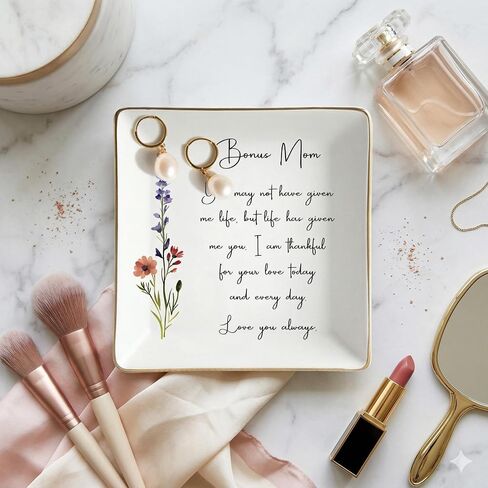 Bonus Mom
may not have given
me life, but life has given
me you. I am thankful
for your love today
and every day.
Love you always.